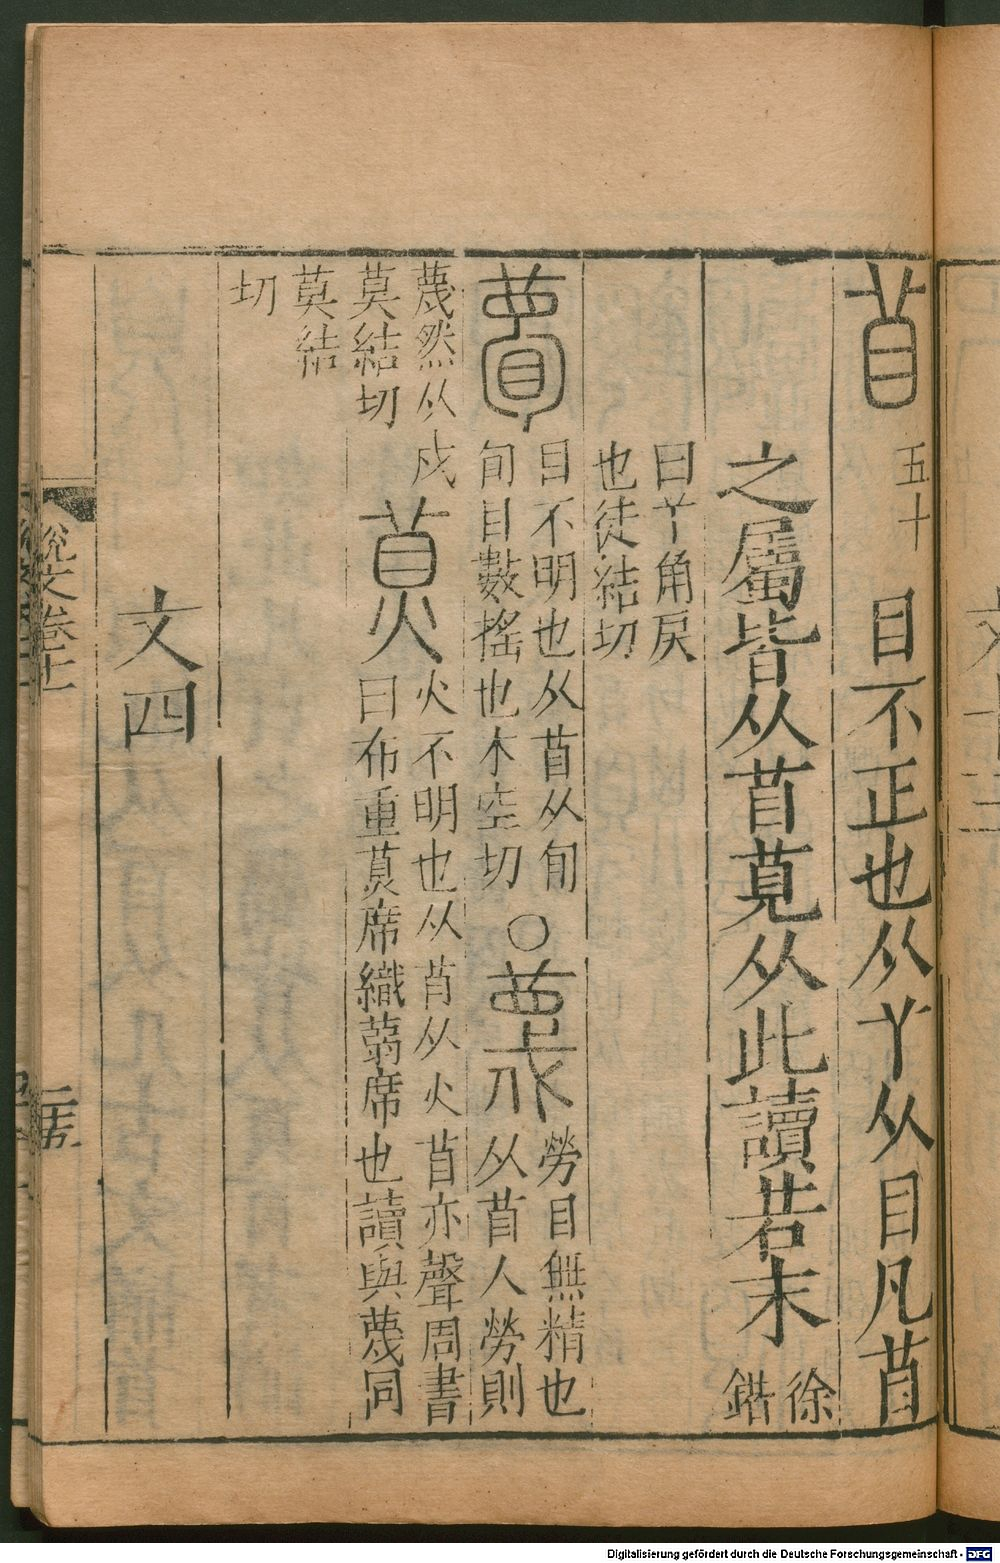 苜 五十 目不正也从丫从目凡苜
之屬皆从苜莧从此讀若末 徐鍇
曰丫角戾
也徒結切
瞢 目不明也从苜从旬
旬目數搖也木空切
○蔑 勞目無精也
从苜人勞則
蔑然从戍
莫結切
𦶟 火不明也从苜从火苜亦聲周書
曰布重𦶟席織蒻席也讀與蔑同
莫結
切
文四
說文卷十一
Digitalisierung gefördert durch die Deutsche Forschungsgemeinschaft - DFG